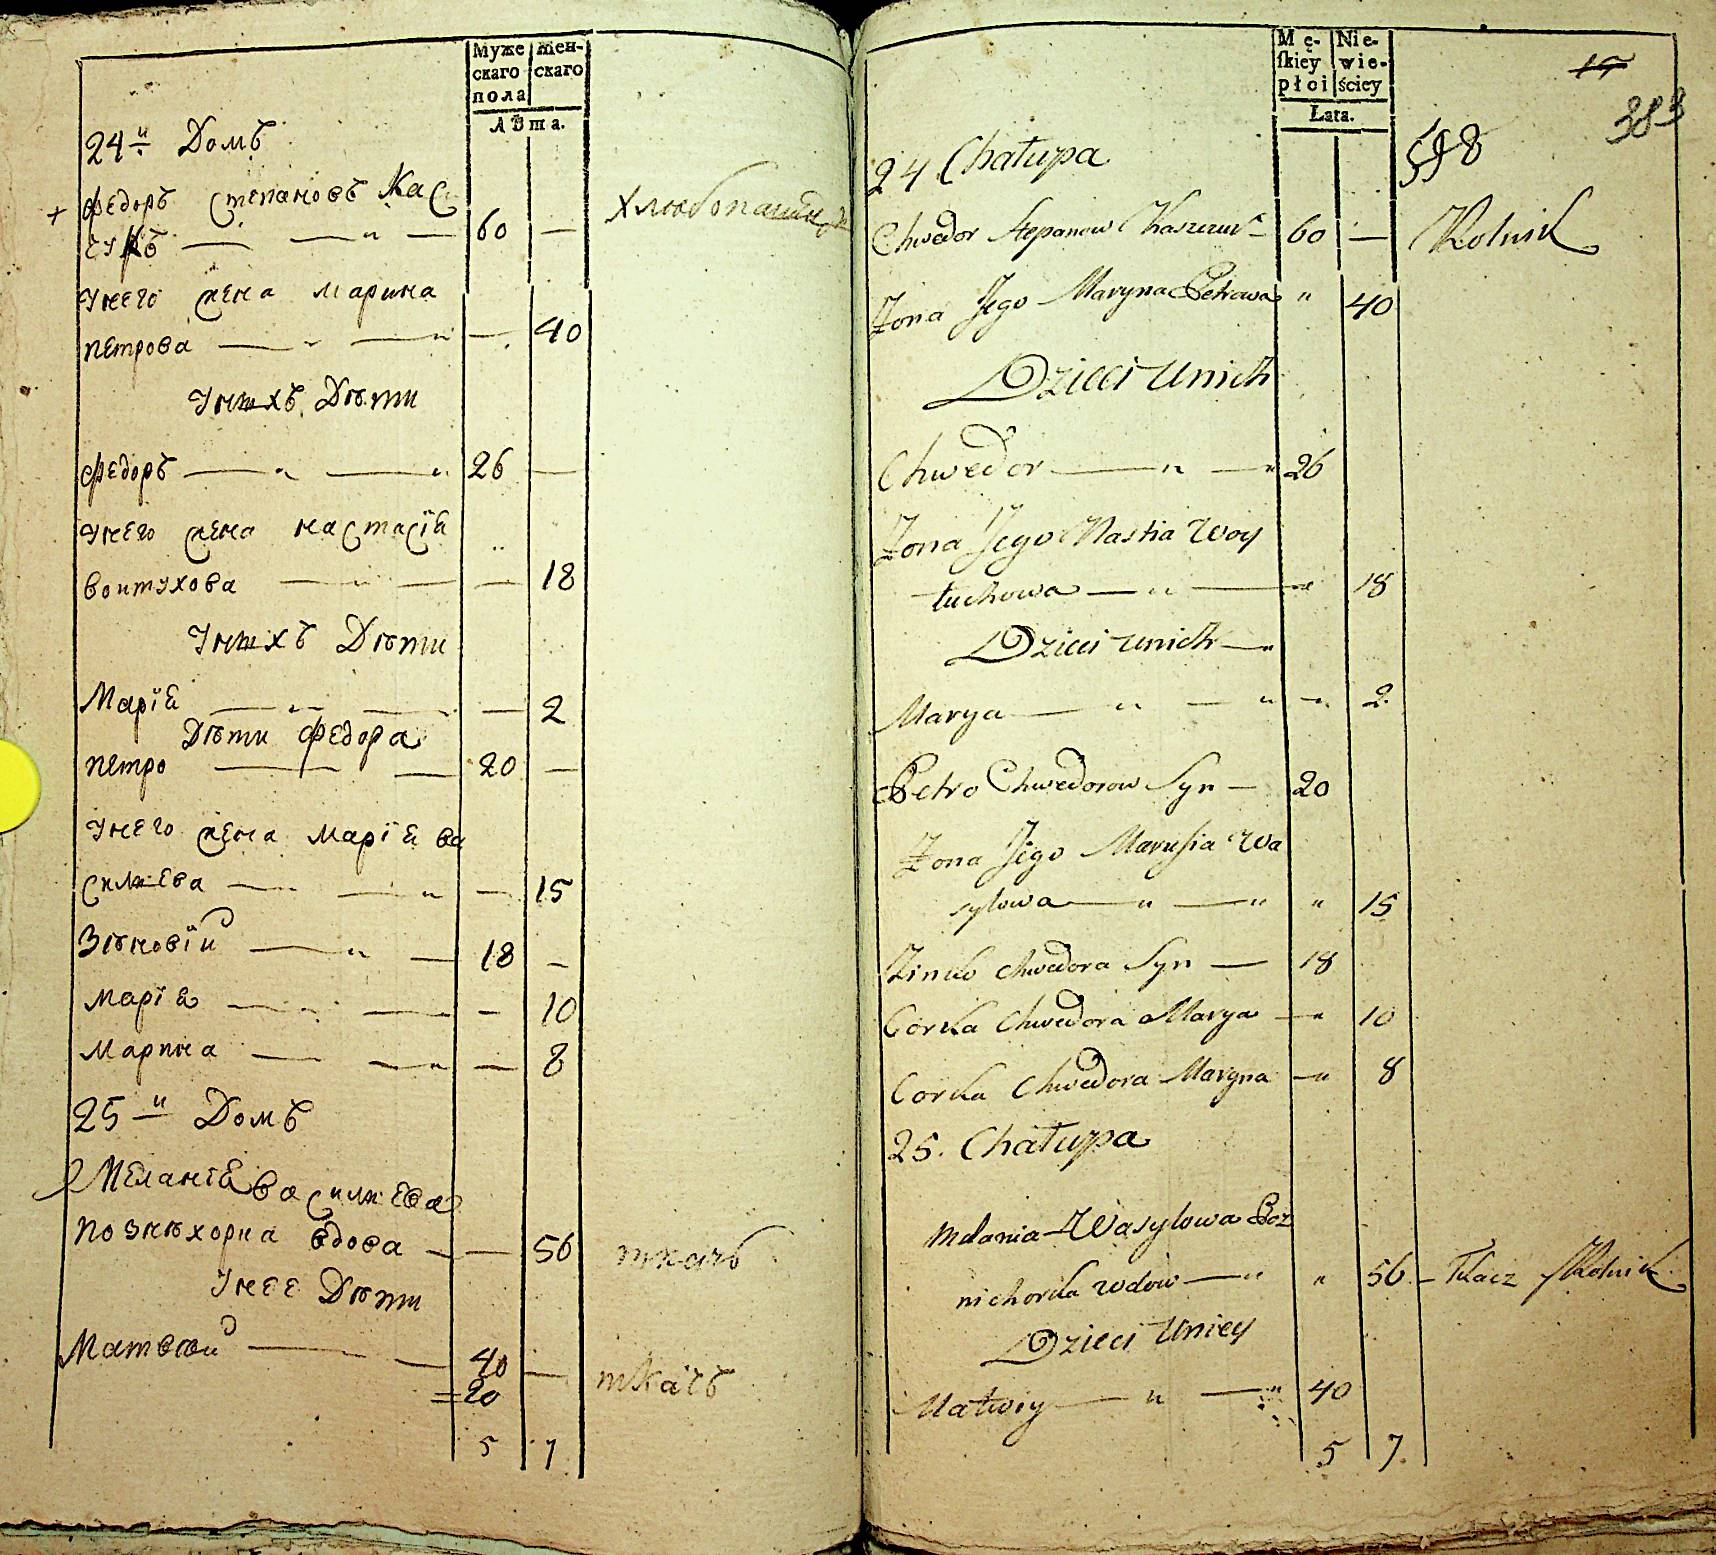 Муже скаго пола
Жен- скаго
Лѣта.
24й Домъ
Федоръ Степановъ Кас
60 —
Хлюбопашец
У него жена Марина
Петрова — " — " — 40
У нихъ Дѣти
Федоръ — " — " 26 —
У него жена Настасїя
Воитухова — " — — 18
У нихъ Дѣти
Марїя — " — — 2
Дѣти Федора
Петро — — 20 —
У него жена Марїя Ва
силиева — — " — 15
Зѣновїй — " — 18 —
Марїя — " — — 10
Марина — — " — 8
25й Домъ
Меланїя Василиева
Познѣхорка вдова — — 56 ткачъ
У нее Дѣти
Матвѣй — — 40 — ткачъ
=20
5 7
Mę- ſkiey płci
Nie- wie- ściey
Łata.
15
383
598
24 Chałupa
Chwedor Stepanow Kaszczuk 60 — Rolnik
Zona Jego Maryna Petrowa " 40
Dzieci u nich
Chwedor — " — " 26
Zona Jego Nastia Woy
tuchowa — " — " 18
Dzieci u nich — "
Marya — " — " — " 2
Petro Chwedorow Syn — 20
Zona Jego Marusia Wa
sylowa — " — " " 15
Zinko Chwedora Syn — 18
Corka Chwedora Marya — " 10
Corka Chwedora Maryna — " 8
25. Chałupa
Melania Wasylowa Poz
nichorka wdow — " " 56 — Tkacz Rolnik
Dzieci u niey
Matwiy — " — " 40
5 7